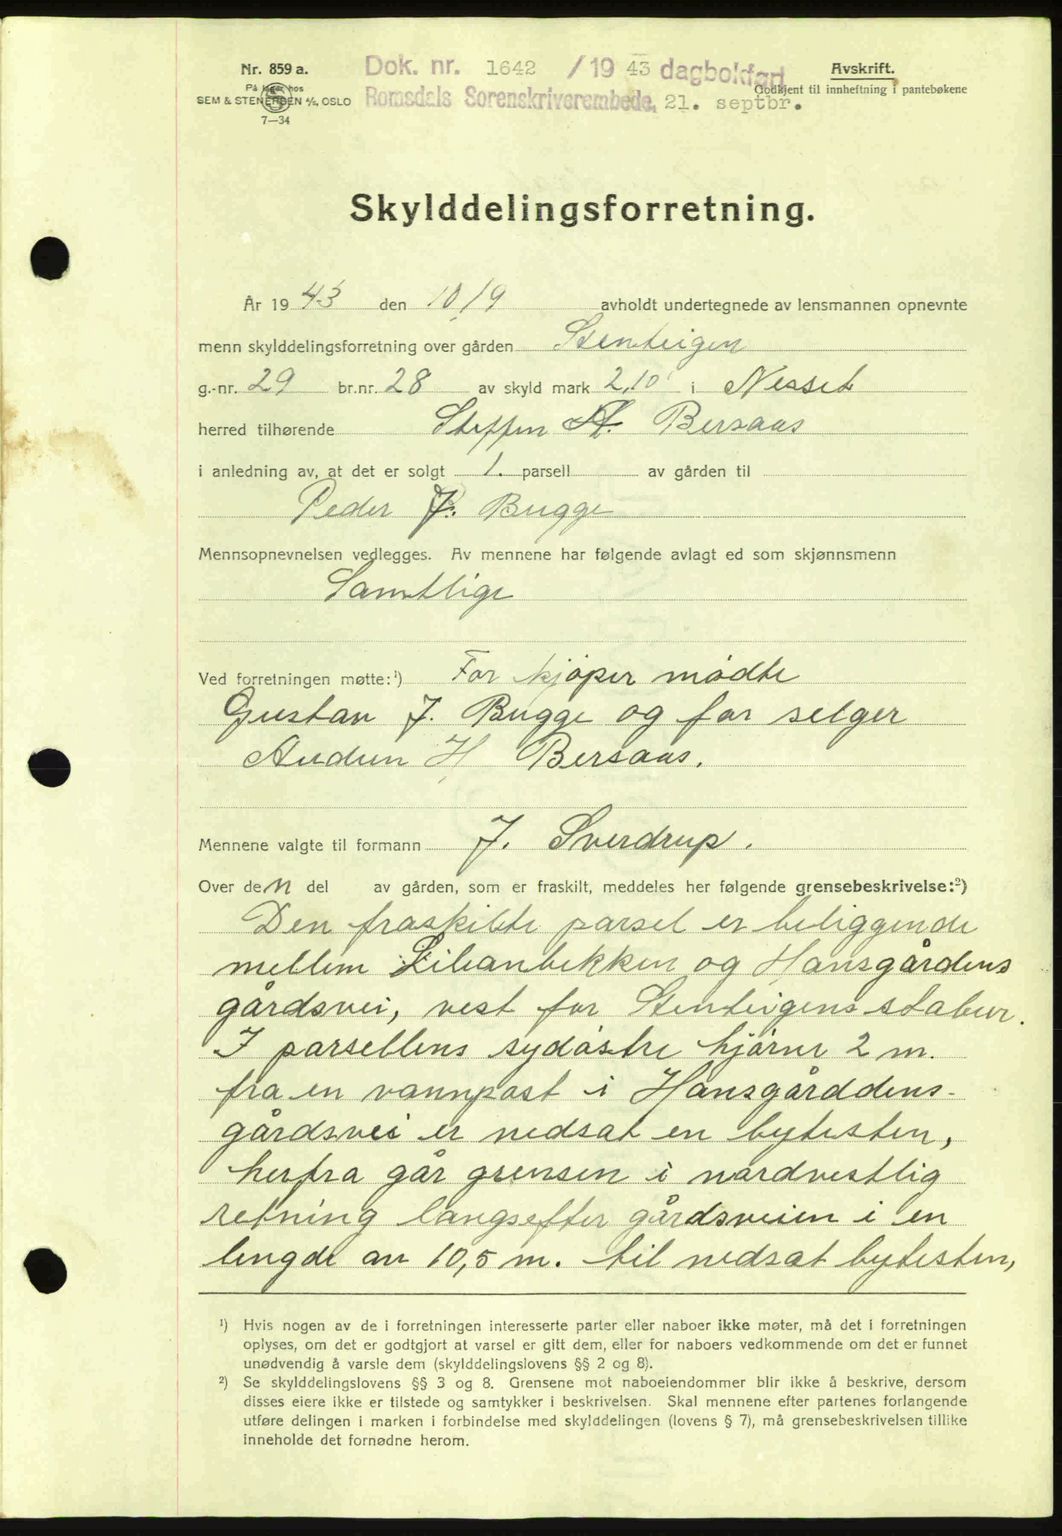 Nr. 859 a.
På lager hos
SEM & STENERSEN A/S, OSLO
7—34
Dok. nr. 1642 /19 43 dagbokført
Romsdals Sorenskriverembede, 21. septbr.
Avskrift.
Godkjent til innheftning i pantebøkene
Skylddelingsforretning.
År 19 43 den 10/9 avholdt undertegnede av lensmannen opnevnte
menn skylddelingsforretning over gården Stenteigen
g.-nr. 29 br.nr. 28 av skyld mark 2,10 i Nesset
herred tilhørende Steffen A. Bersaas
i anledning av, at det er solgt 1. parsell av gården til
Peder J. Bugge
Mennsopnevnelsen vedlegges. Av mennene har følgende avlagt ed som skjønnsmenn
Samtlige
Ved forretningen møtte:¹) For kjøper mødte
Gustav J. Bugge og for selger
Audun H Bersaas.
Mennene valgte til formann J. Sverdrup.
Over den del av gården, som er fraskilt, meddeles her følgende grensebeskrivelse:²)
Den fraskilte parsel er beliggende
mellem Libanbekken og Hansgårdens
gårdsvei, vest for Stenteigens stabur.
I parsellens sydøstre hjørne 2 m.
fra en vannpost i Hansgårddens-
gårdsvei er nedsat en bytesten,
herfra går grensen i nordvestlig
retning langsefter gårdsveien i en
lengde av 10,5 m. til nedsat bytesten,
¹) Hvis nogen av de i forretningen interesserte parter eller naboer ikke møter, må det i forretningen
oplyses, om det er godtgjort at varsel er gitt dem, eller for naboers vedkommende om det er funnet
unødvendig å varsle dem (skylddelingslovens §§ 2 og 8).
²) Se skylddelingslovens §§ 3 og 8. Grensene mot naboeiendommer blir ikke å beskrive, dersom
disses eiere ikke er tilstede og samtykker i beskrivelsen. Skal mennene efter partenes forlangende
utføre delingen i marken i forbindelse med skylddelingen (lovens § 7), må grensebeskrivelsen tillike
inneholde det fornødne herom.